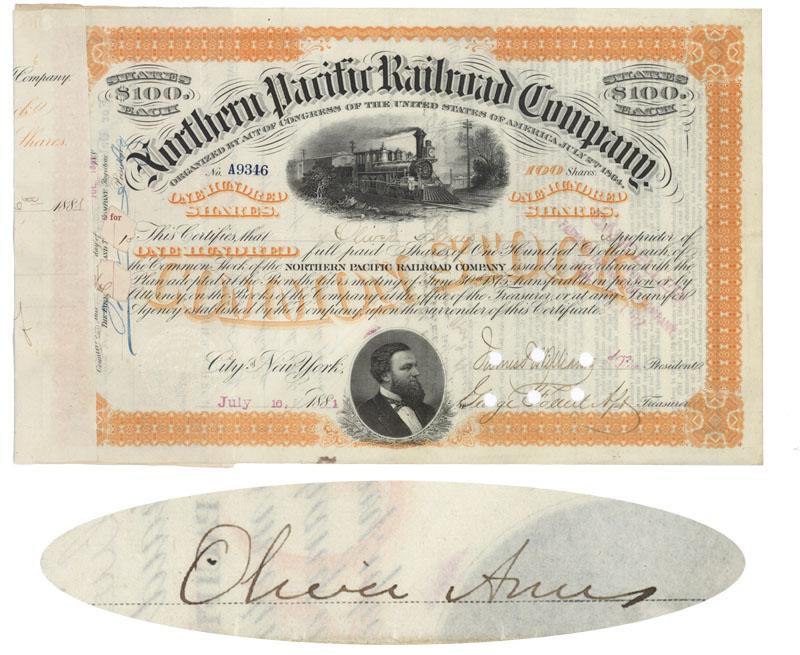 Company.
Shares.
SHARES $100. EACH
SHARES $100. EACH
Northern Pacific Railroad Company.
ORGANIZED BY ACT OF CONGRESS OF THE UNITED STATES OF AMERICA JULY 2ND 1864.
No. A9346
100 Shares.
ONE HUNDRED SHARES.
ONE HUNDRED SHARES.
This Certifies, that Oliver Ames is proprietor of
ONE HUNDRED full paid Shares of One Hundred Dollars each of
the Common Stock of the NORTHERN PACIFIC RAILROAD COMPANY issued in accordance with the
Plan adopted at the Bondholders meeting of June 30th 1875, transferable in person or by
Attorney, on the Books of the Company, at the office of the Treasurer, or at any Transfer
Agency established by the Company, upon the surrender of this Certificate.
COMMON STOCK
City of New York,
President
July 16, 1881
Treasurer
1881
for
Oliver Ames